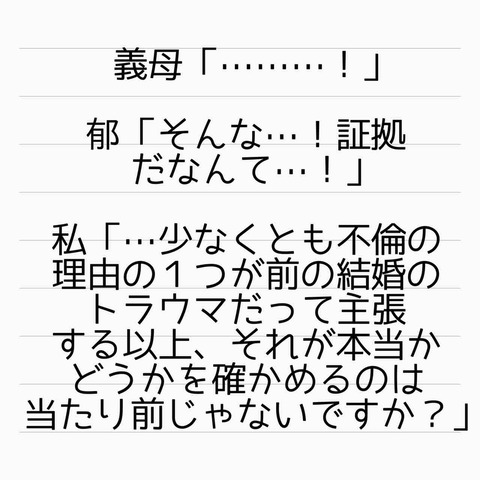 義母「………！」
郁「そんな…！証拠
だなんて…！」
私「…少なくとも不倫の
理由の１つが前の結婚の
トラウマだって主張
する以上、それが本当か
どうかを確かめるのは
当たり前じゃないですか？」